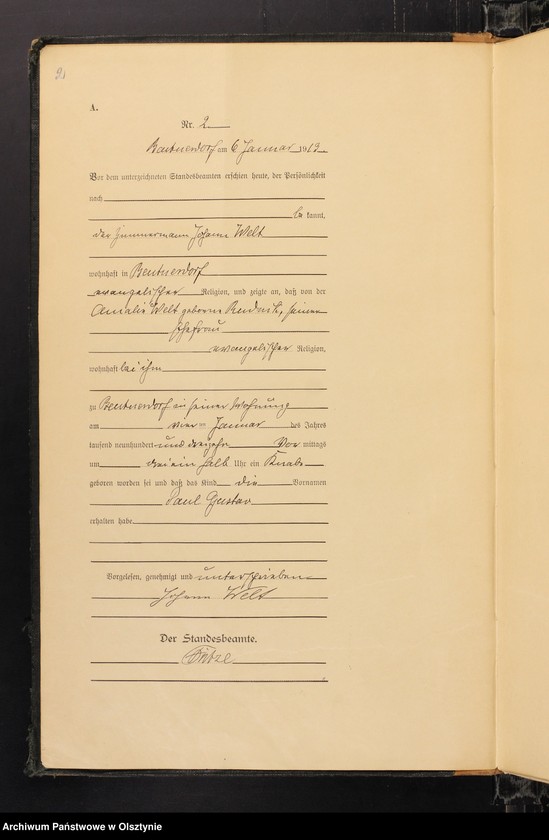 2.
A.
Nr. 2
Beutnerdorf am 6 Januar 1913
Vor dem unterzeichneten Standesbeamten erschien heute, der Persönlichkeit
nach
be kannt,
der Zimmermann Johann Welt
wohnhaft in Beutnerdorf
evangelischer Religion, und zeigte an, daß von der
Amalie Welt geborene seiner
Ehefrau
evangelischer Religion,
wohnhaft bei ihm
zu Beutnerdorf in seiner Wohnung
am vier Januar des Jahres
tausend neunhundert und dreizehn Vor mittags
um ein halb Uhr ein Knabe
geboren worden sei und daß das Kind die Vornamen
Paul Gustav
erhalten habe
Vorgelesen, genehmigt und unterschrieben
Johann Welt
Der Standesbeamte.
Archiwum Państwowe w Olsztynie